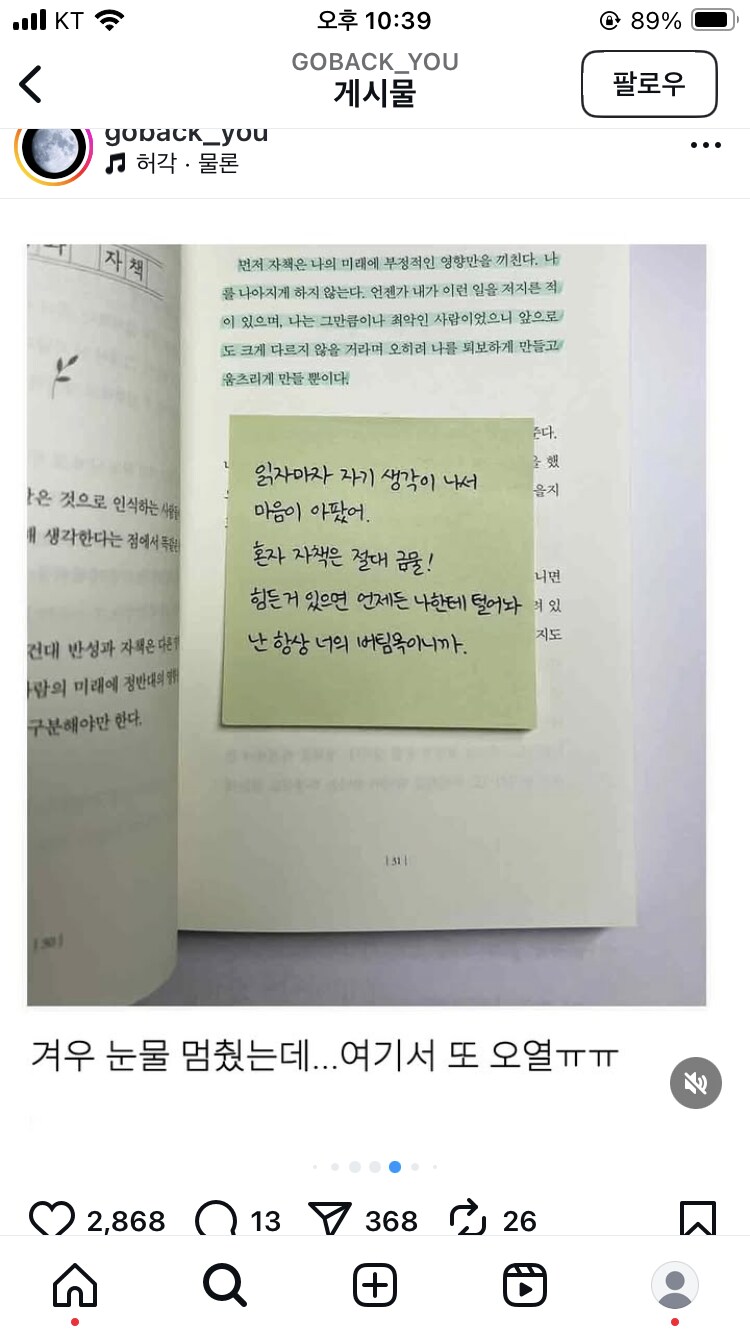 KT 오후 10:39 89%
GOBACK_YOU
게시물
팔로우
goback_you
허각 · 물론
자책
먼저 자책은 나의 미래에 부정적인 영향만을 끼친다. 나
를 나아지게 하지 않는다. 언젠가 내가 이런 일을 저지른 적
이 있으며, 나는 그만큼이나 최악인 사람이었으니 앞으로
도 크게 다르지 않을 거라며 오히려 나를 퇴보하게 만들고
움츠리게 만들 뿐이다.
읽자마자 자기 생각이 나서
마음이 아팠어.
혼자 자책은 절대 금물!
힘든거 있으면 언제든 나한테 털어놔
난 항상 너의 버팀목이니까.
준다.
을 했
을지
니면
려 있
지도
|31|
같은 것으로 인식하는
해 생각한다는 점에서
건대 반성과 자책은 다른
사람의 미래에 정반대의
구분해야만 한다.
|30|
겨우 눈물 멈췄는데...여기서 또 오열ㅠㅠ
2,868 13 368 26